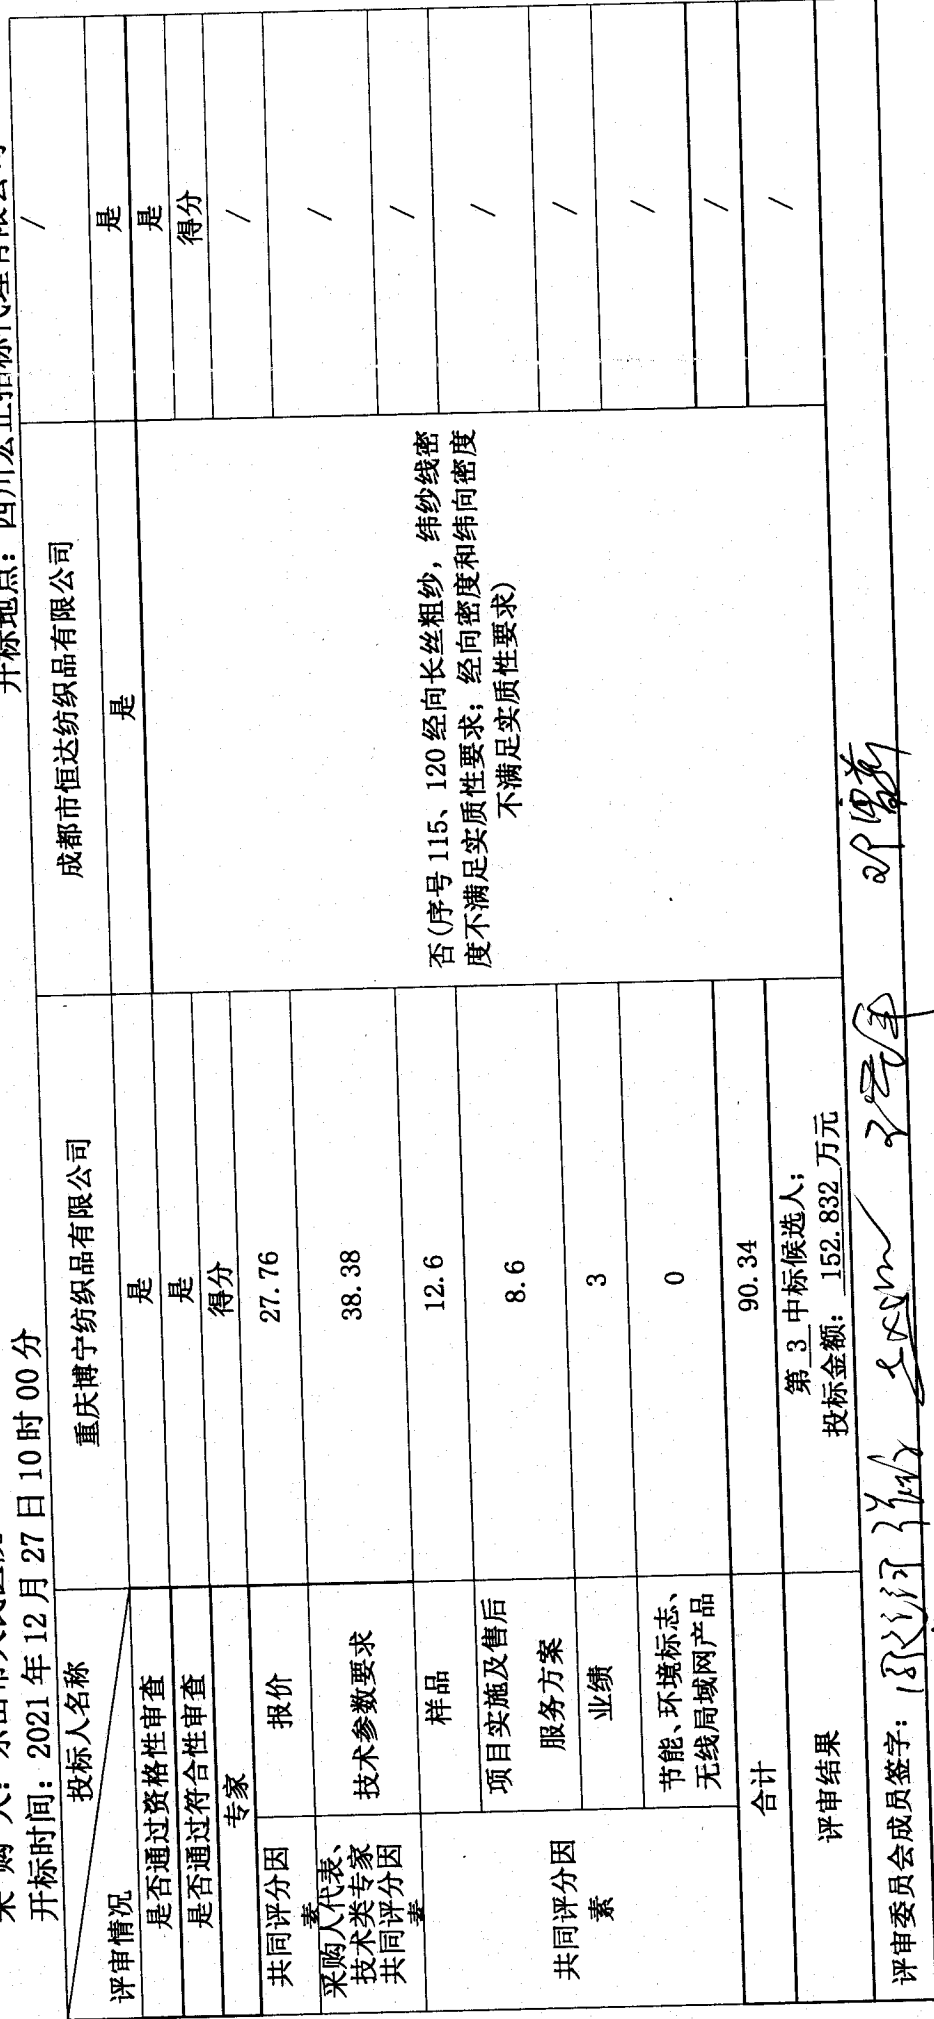 开标时间：2021 年 12 月 27 日 10 时 00 分
开标地点：四川宏正招标代理有限公司
投标人名称
评审情况
重庆博宁纺织品有限公司
成都市恒达纺织品有限公司
/
是否通过资格性审查
是
是
是
是否通过符合性审查
是
否(序号 115、120 经向长丝粗纱，纬纱线密
度不满足实质性要求；经向密度和纬向密度
不满足实质性要求)
是
专家
得分
得分
共同评分因
素
报价
27.76
/
采购人代表、
技术类专家
共同评分因
素
技术参数要求
38.38
/
共同评分因
素
样品
12.6
/
项目实施及售后
服务方案
8.6
/
业绩
3
/
节能、环境标志、
无线局域网产品
0
/
合计
90.34
/
评审结果
第 3 中标候选人；
投标金额： 152.832 万元
/
评审委员会成员签字：